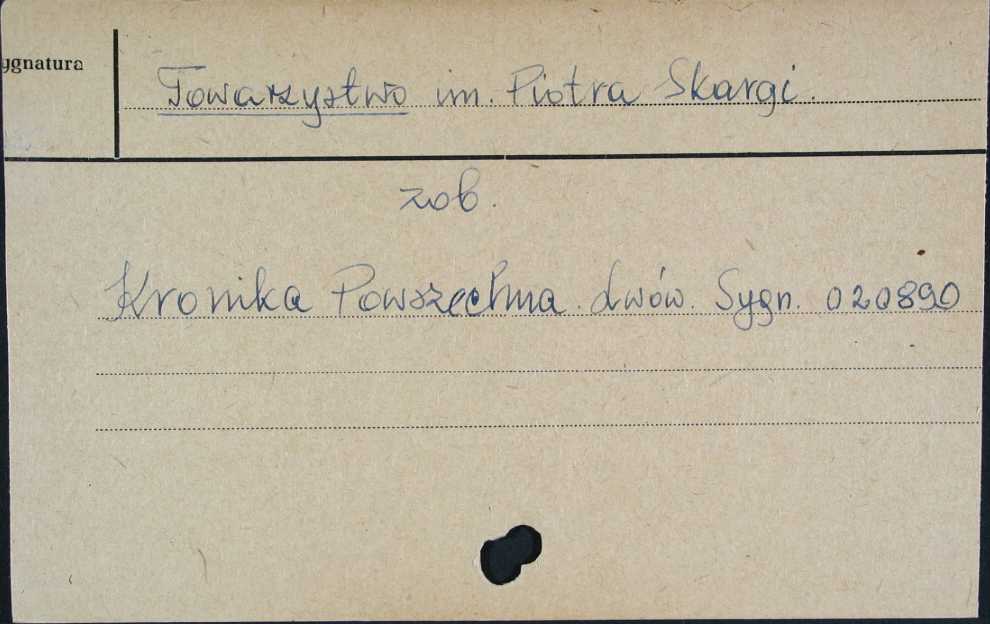 ygnatura
Towarzystwo im. Piotra Skargi.
zob.
Kronika Powszechna. Lwów. Sygn. 020890